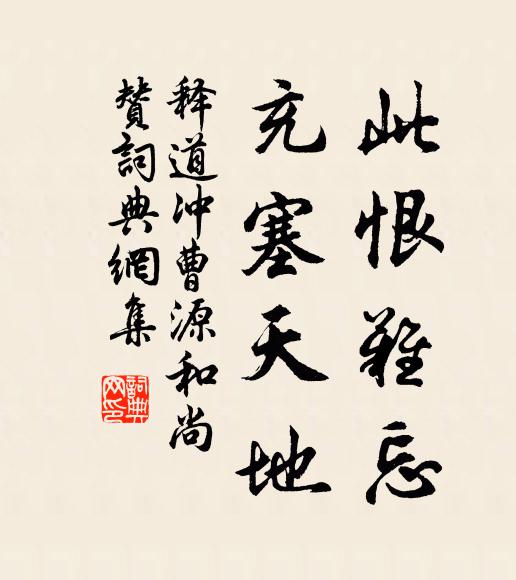 此恨難忘
充塞天地
释道冲曹源和尚
赞詞典網集
詞典
网印